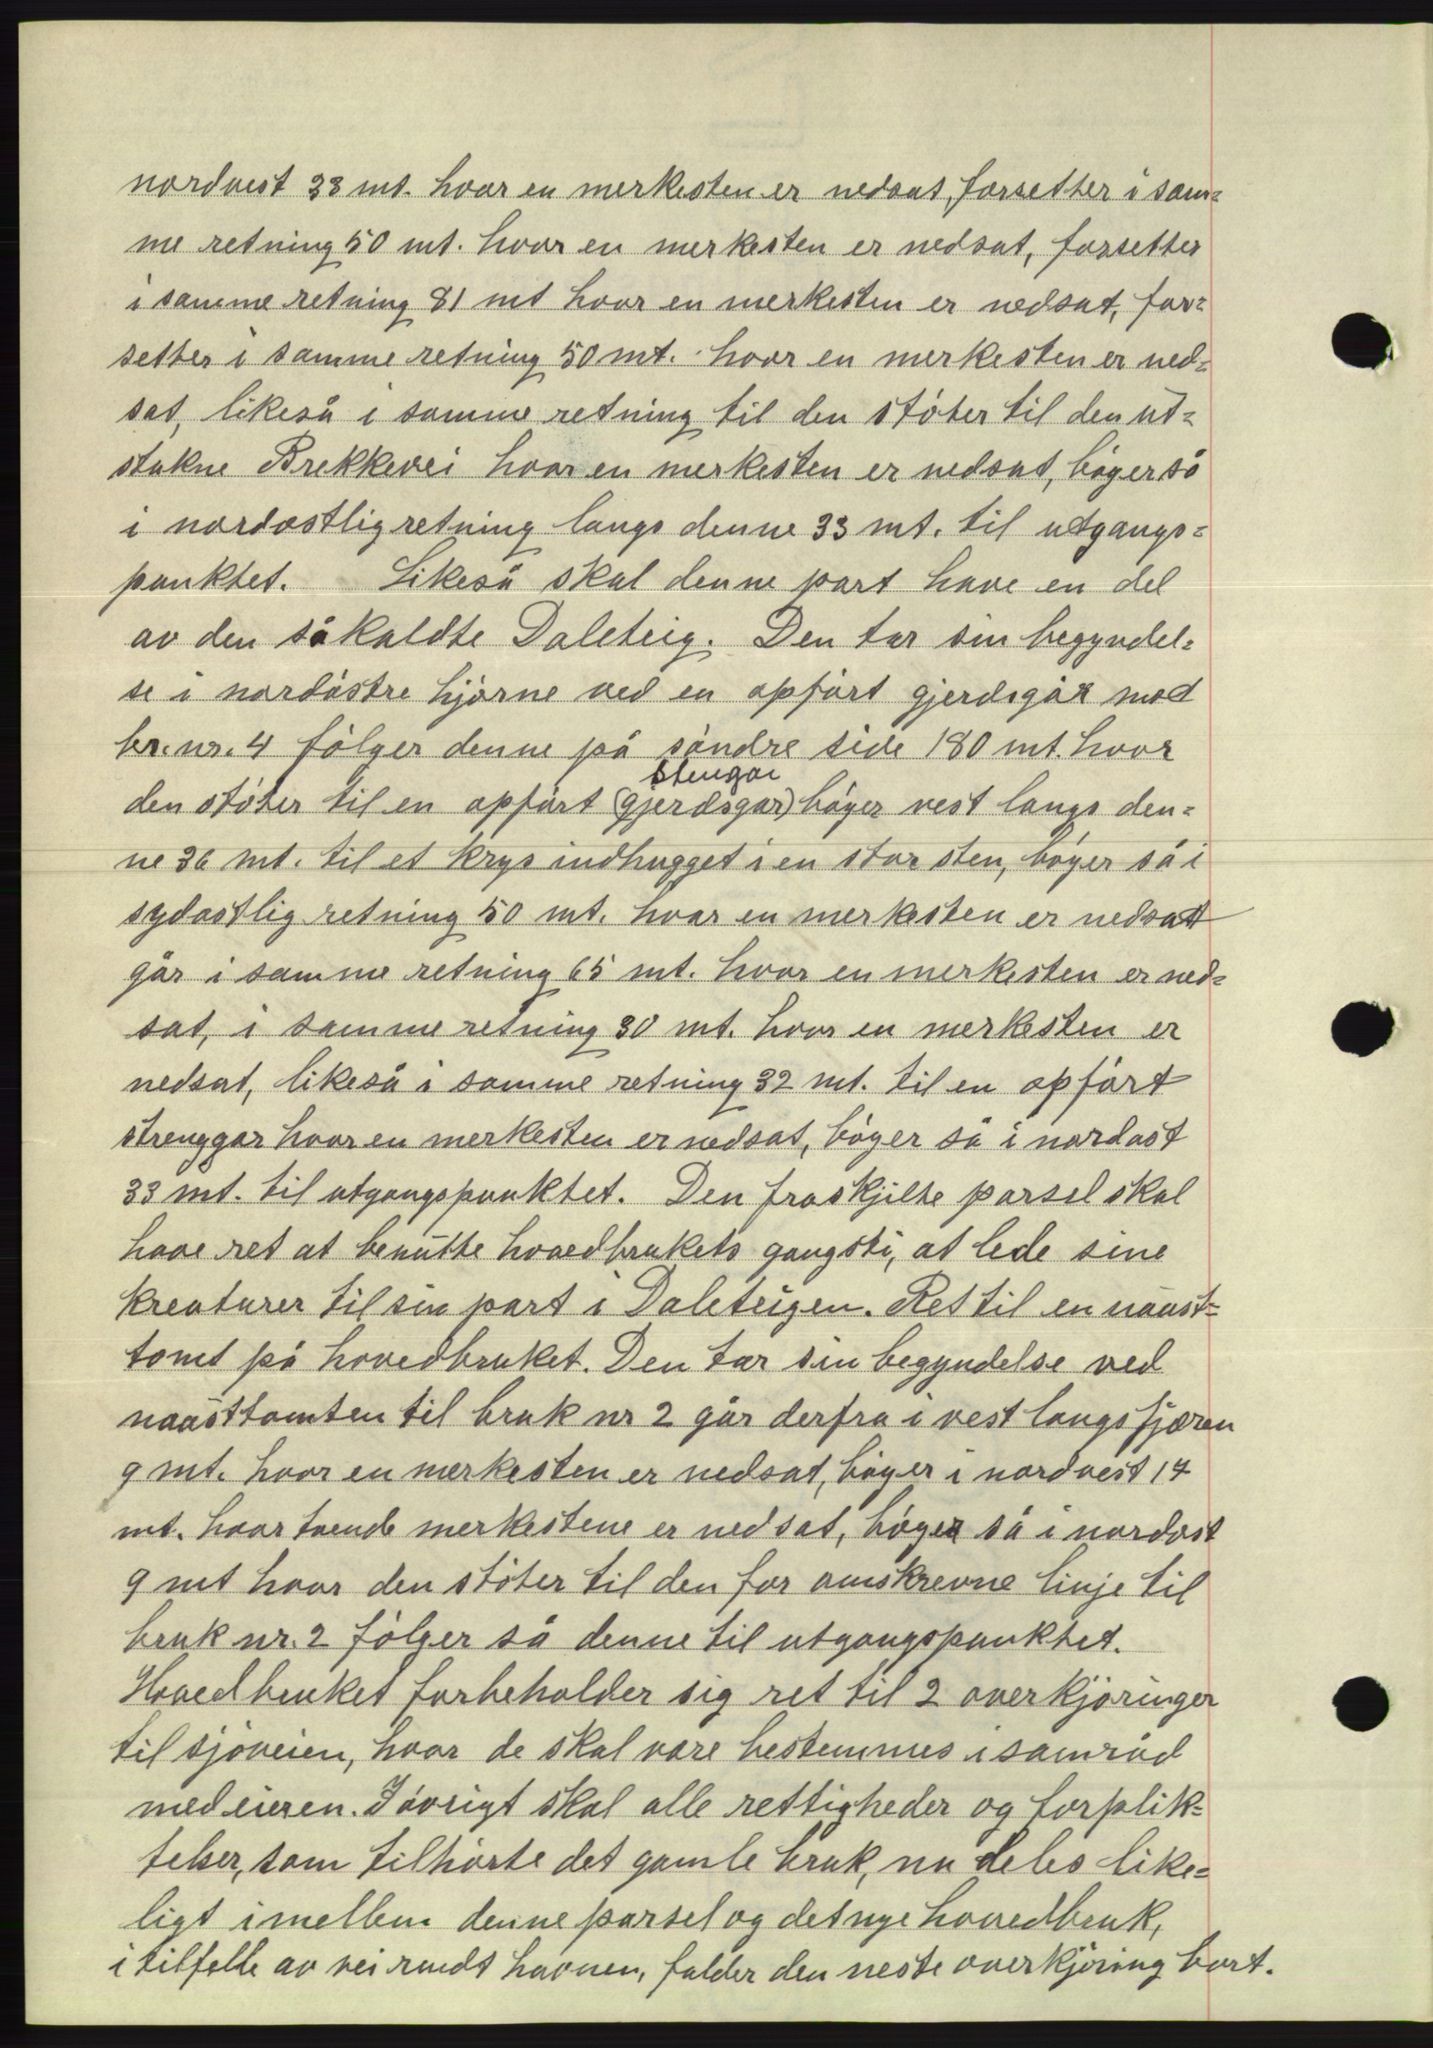 nordvest 33 mt. hvor en merkesten er nedsat, forsetter i sam=
me retning 50 mt. hvor en merkesten er nedsat, forsetter
i samme retning 81 mt hvor en merkesten er nedsat, for=
setter i samme retning 50 mt. hvor en merkesten er ned=
sat, likeså i samme retning til den stöter til den ut=
stukne Brekkevei hvor en merkesten er nedsat, böger så
i nordostlig retning langs denne 33 mt. til utgangs=
punktet. Likeså skal denne part have en del
av den såkaldte Daleteig. Den tar sin begyndel=
se i nordöstre hjörne ved en opfört gjerdsgår mod
br. nr. 4 fölger denne på söndre side 180 mt. hvor
stengar
den stöter til en opfört (gjerdsgar) böger vest langs den=
ne 36 mt. til et krys indhugget i en stor sten, böger så i
sydostlig retning 50 mt. hvor en merkesten er nedsatt
går i samme retning 65 mt. hvor en merkesten er ned=
sat, i samme retning 30 mt. hvor en merkesten er
nedsat, likeså i samme retning 32 mt. til en opfört
strenggar hvor en merkesten er nedsat, böger så i nordost
33 mt. til utgangspunktet. Den fraskjilte parsel skal
have ret at benütte hovedbrukets gangsti, at lede sine
kreaturer til sin part i Daleteigen. Ret til en naust=
tomt på hovedbruket. Den tar sin begyndelse ved
nausttomten til bruk nr 2 går derfra i vest langs fjæren
9 mt. hvor en merkesten er nedsat, böger i nordvest 17
mt. hvor tvende merkestene er nedsat, böger så i nordost
9 mt hvor den stöter til den for omskrevne linje til
bruk nr. 2 fölger så denne til utgangspunktet.
Hovedbruket forbeholder sig ret til 2 overkjöringer
til sjöveien, hvor de skal være bestemmes i samråd
med eieren. Iövrigt skal alle rettigheder og forplik=
telser, som tilhörte det gamle bruk, nu deles like=
ligt imellem denne parsel og det nye hovedbruk,
i tilfelle av vei rundt havnen, falder den neste overkjöring bort.